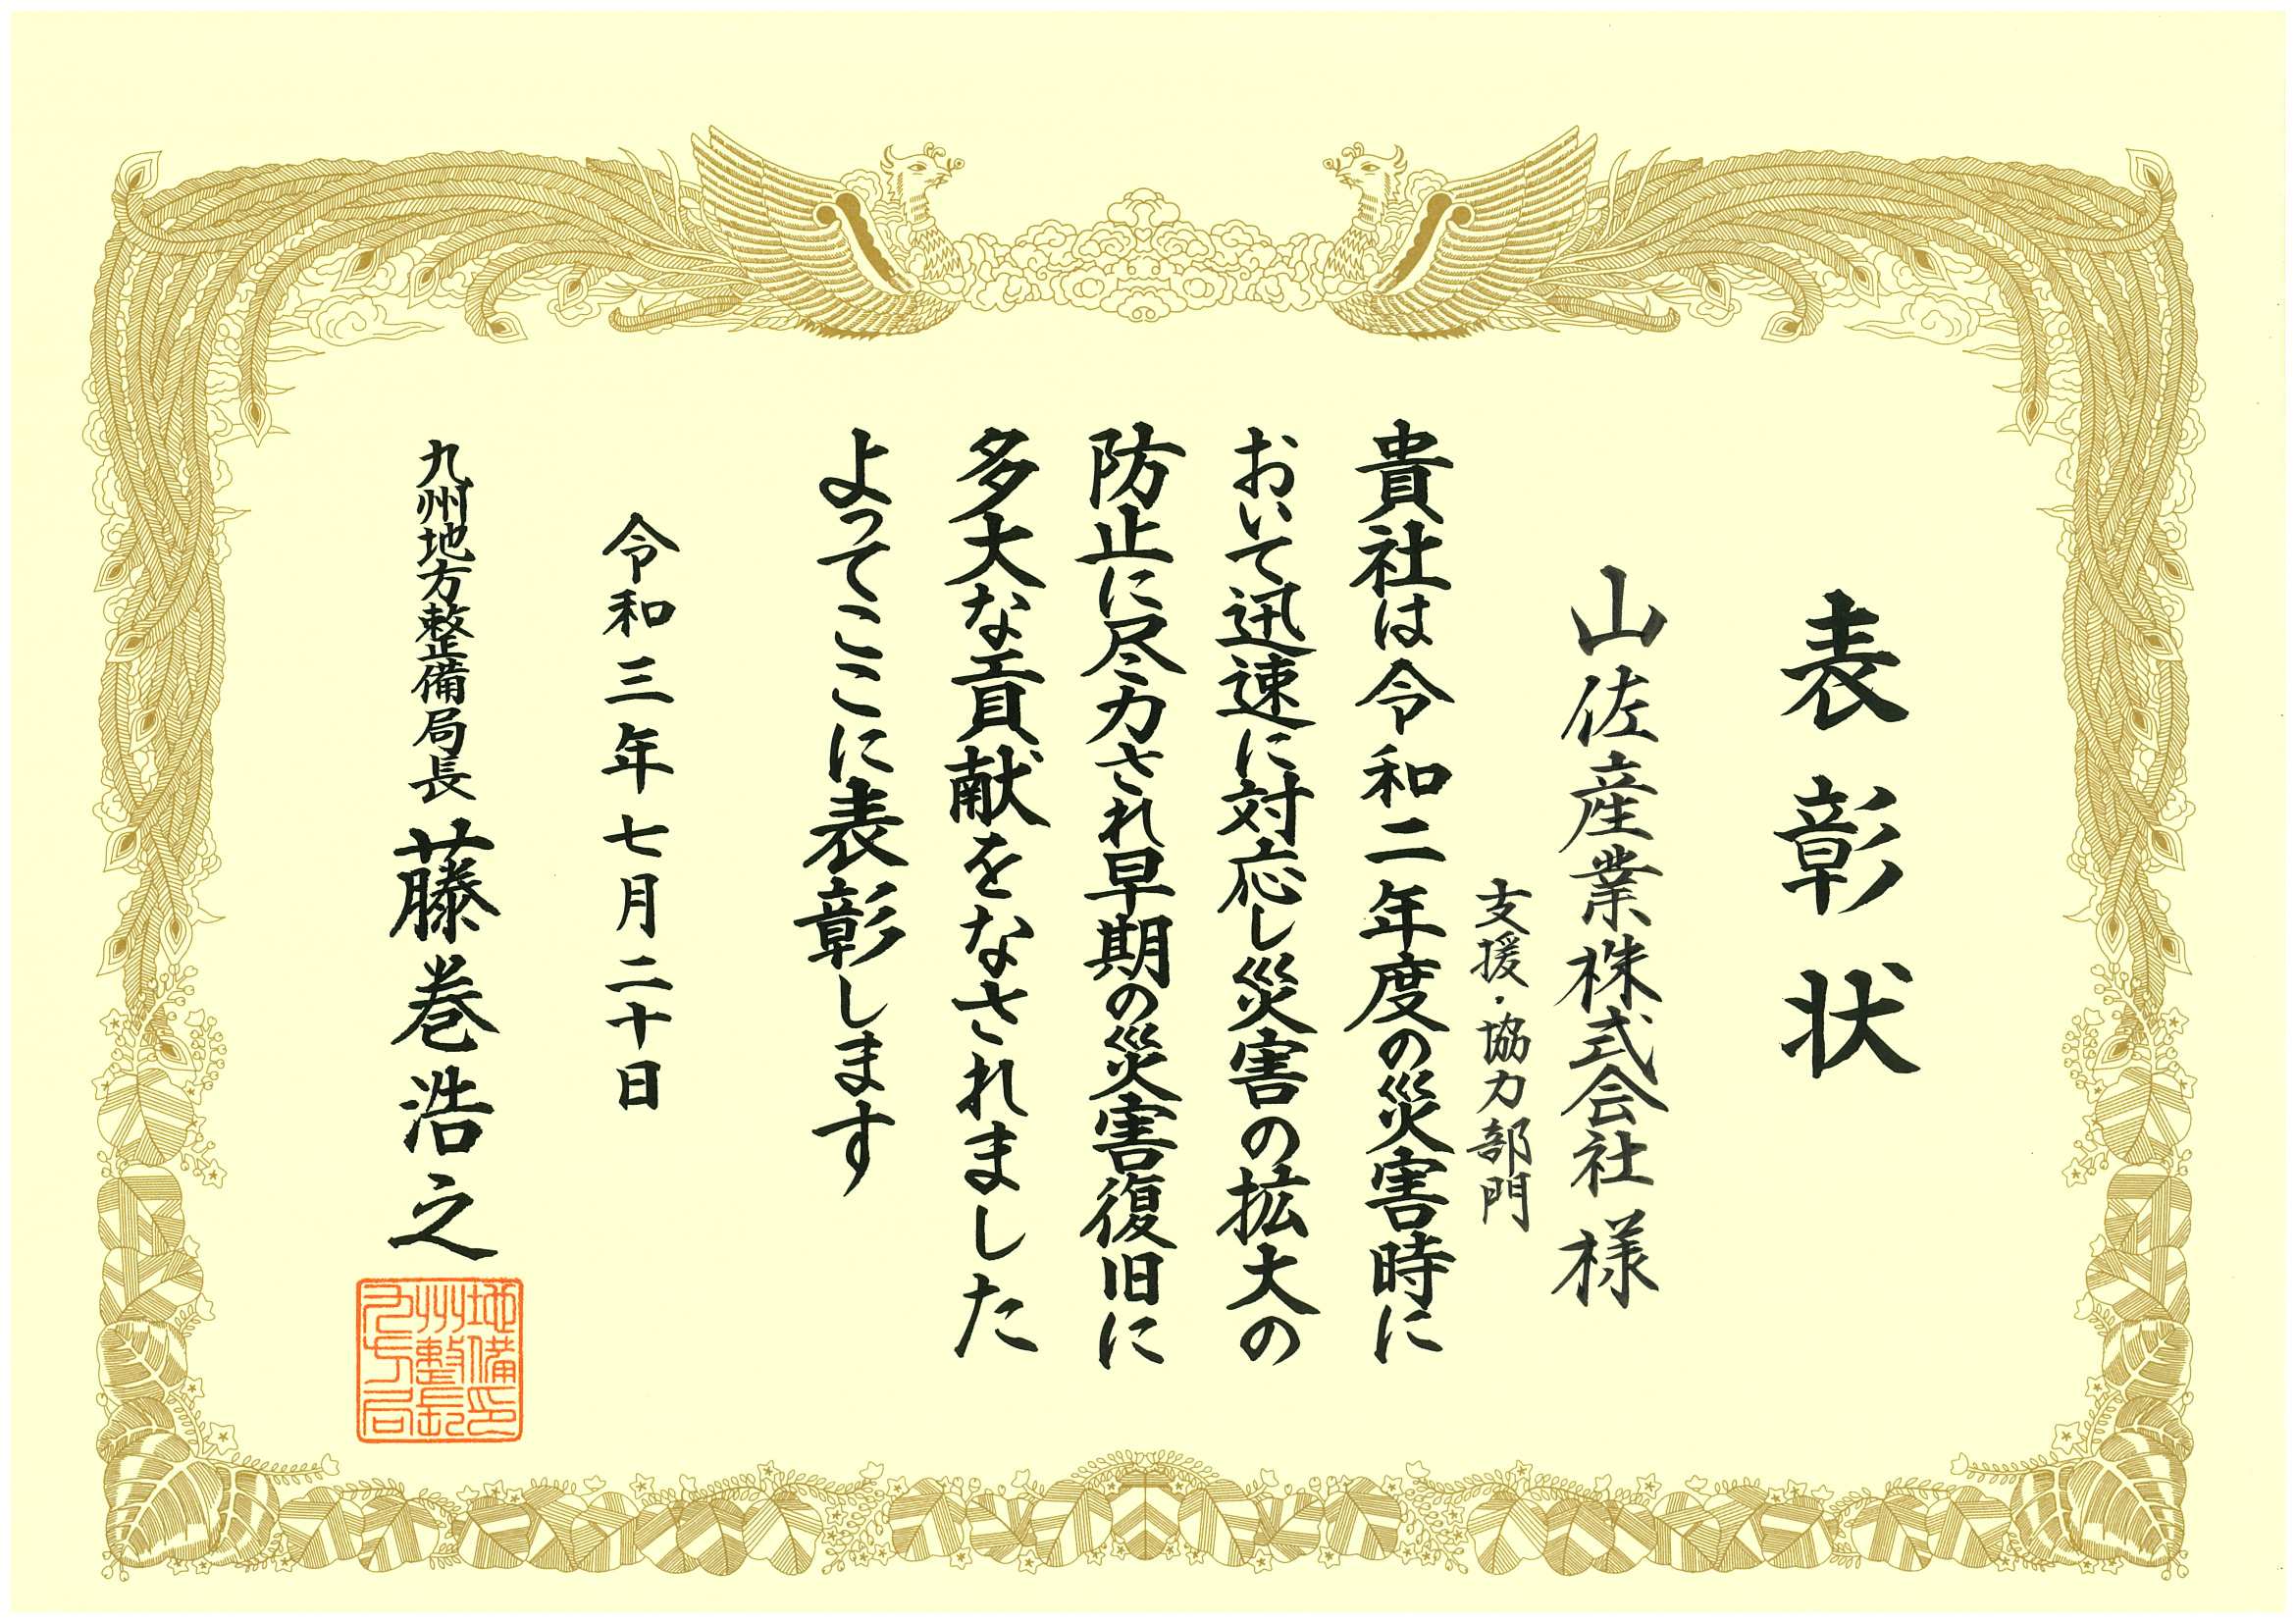 表彰状
山佐産業株式会社様
支援・協力部門
貴社は令和二年度の災害時に
おいて迅速に対応し災害の拡大の
防止に尽力され早期の災害復旧に
多大な貢献をなされました
よってここに表彰します
令和三年七月二十日
九州地方整備局長 藤巻浩之
地備印
州整長
九方局